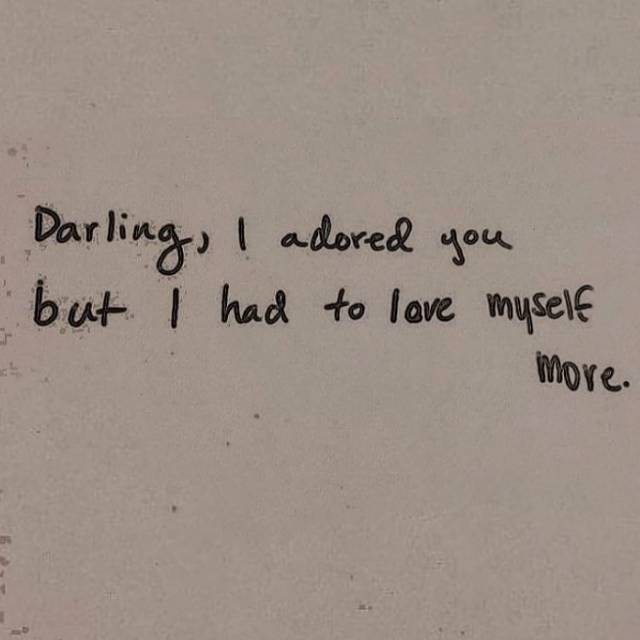 Darling, I adored you
but I had to love myself
more.